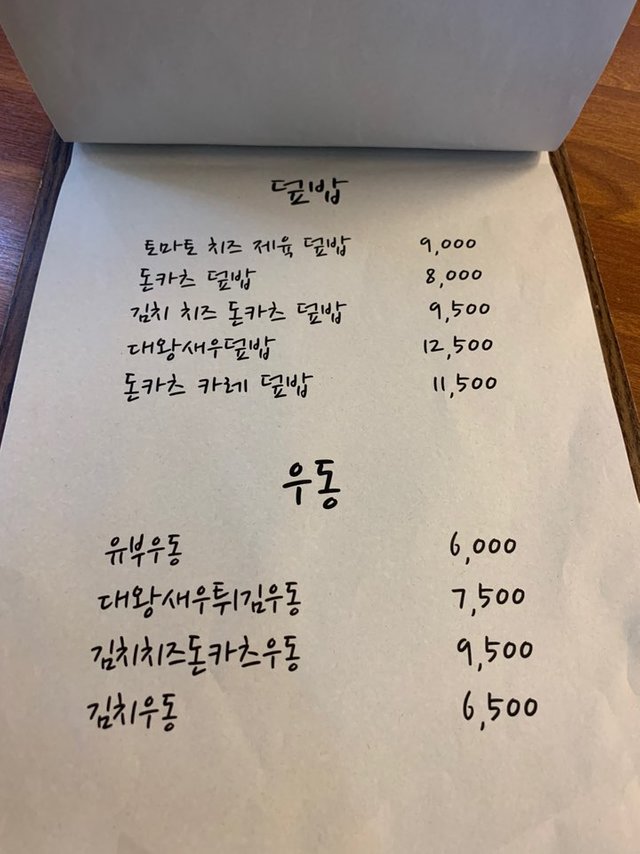 덮밥
토마토 치즈 제육 덮밥 9,000
돈카츠 덮밥 8,000
김치 치즈 돈카츠 덮밥 9,500
대왕새우덮밥 12,500
돈카츠 카레 덮밥 11,500
우동
유부우동 6,000
대왕새우튀김우동 7,500
김치치즈돈카츠우동 9,500
김치우동 6,500